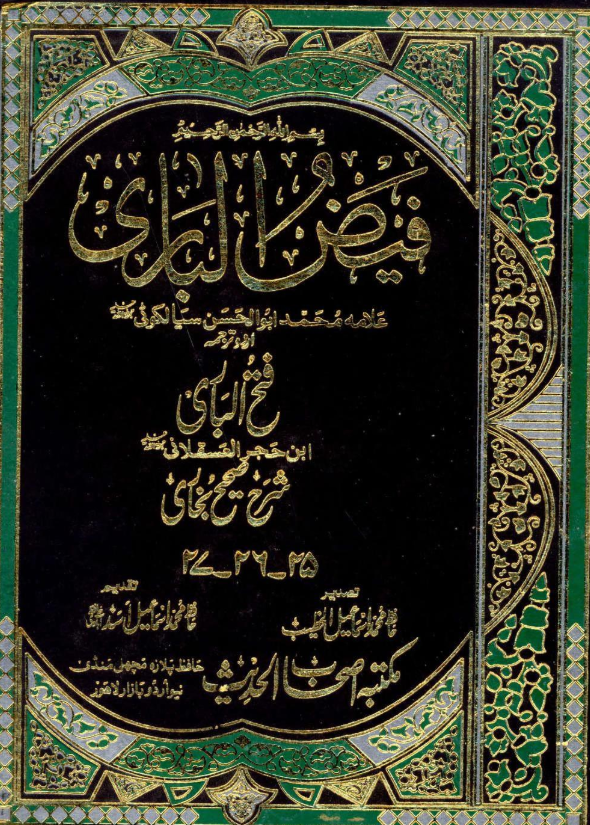 بسم الله الرحمن الرحيم
فیض الباری
علامه محمد ابوالحسن سیالکوٹی
اردو ترجمہ
فتح الباری
ابن حجر العسقلانی
شرح صحیح بخاری
۲۵-۲۶-۲۷
تصدیر
حافظ محمد اسماعیل الخطیب
تقدیم
حافظ محمد اسماعیل اسد
مکتبہ اصحاب الحدیث
حافظ پلازہ مچھلی منڈی
نیو اردو بازار لاهور